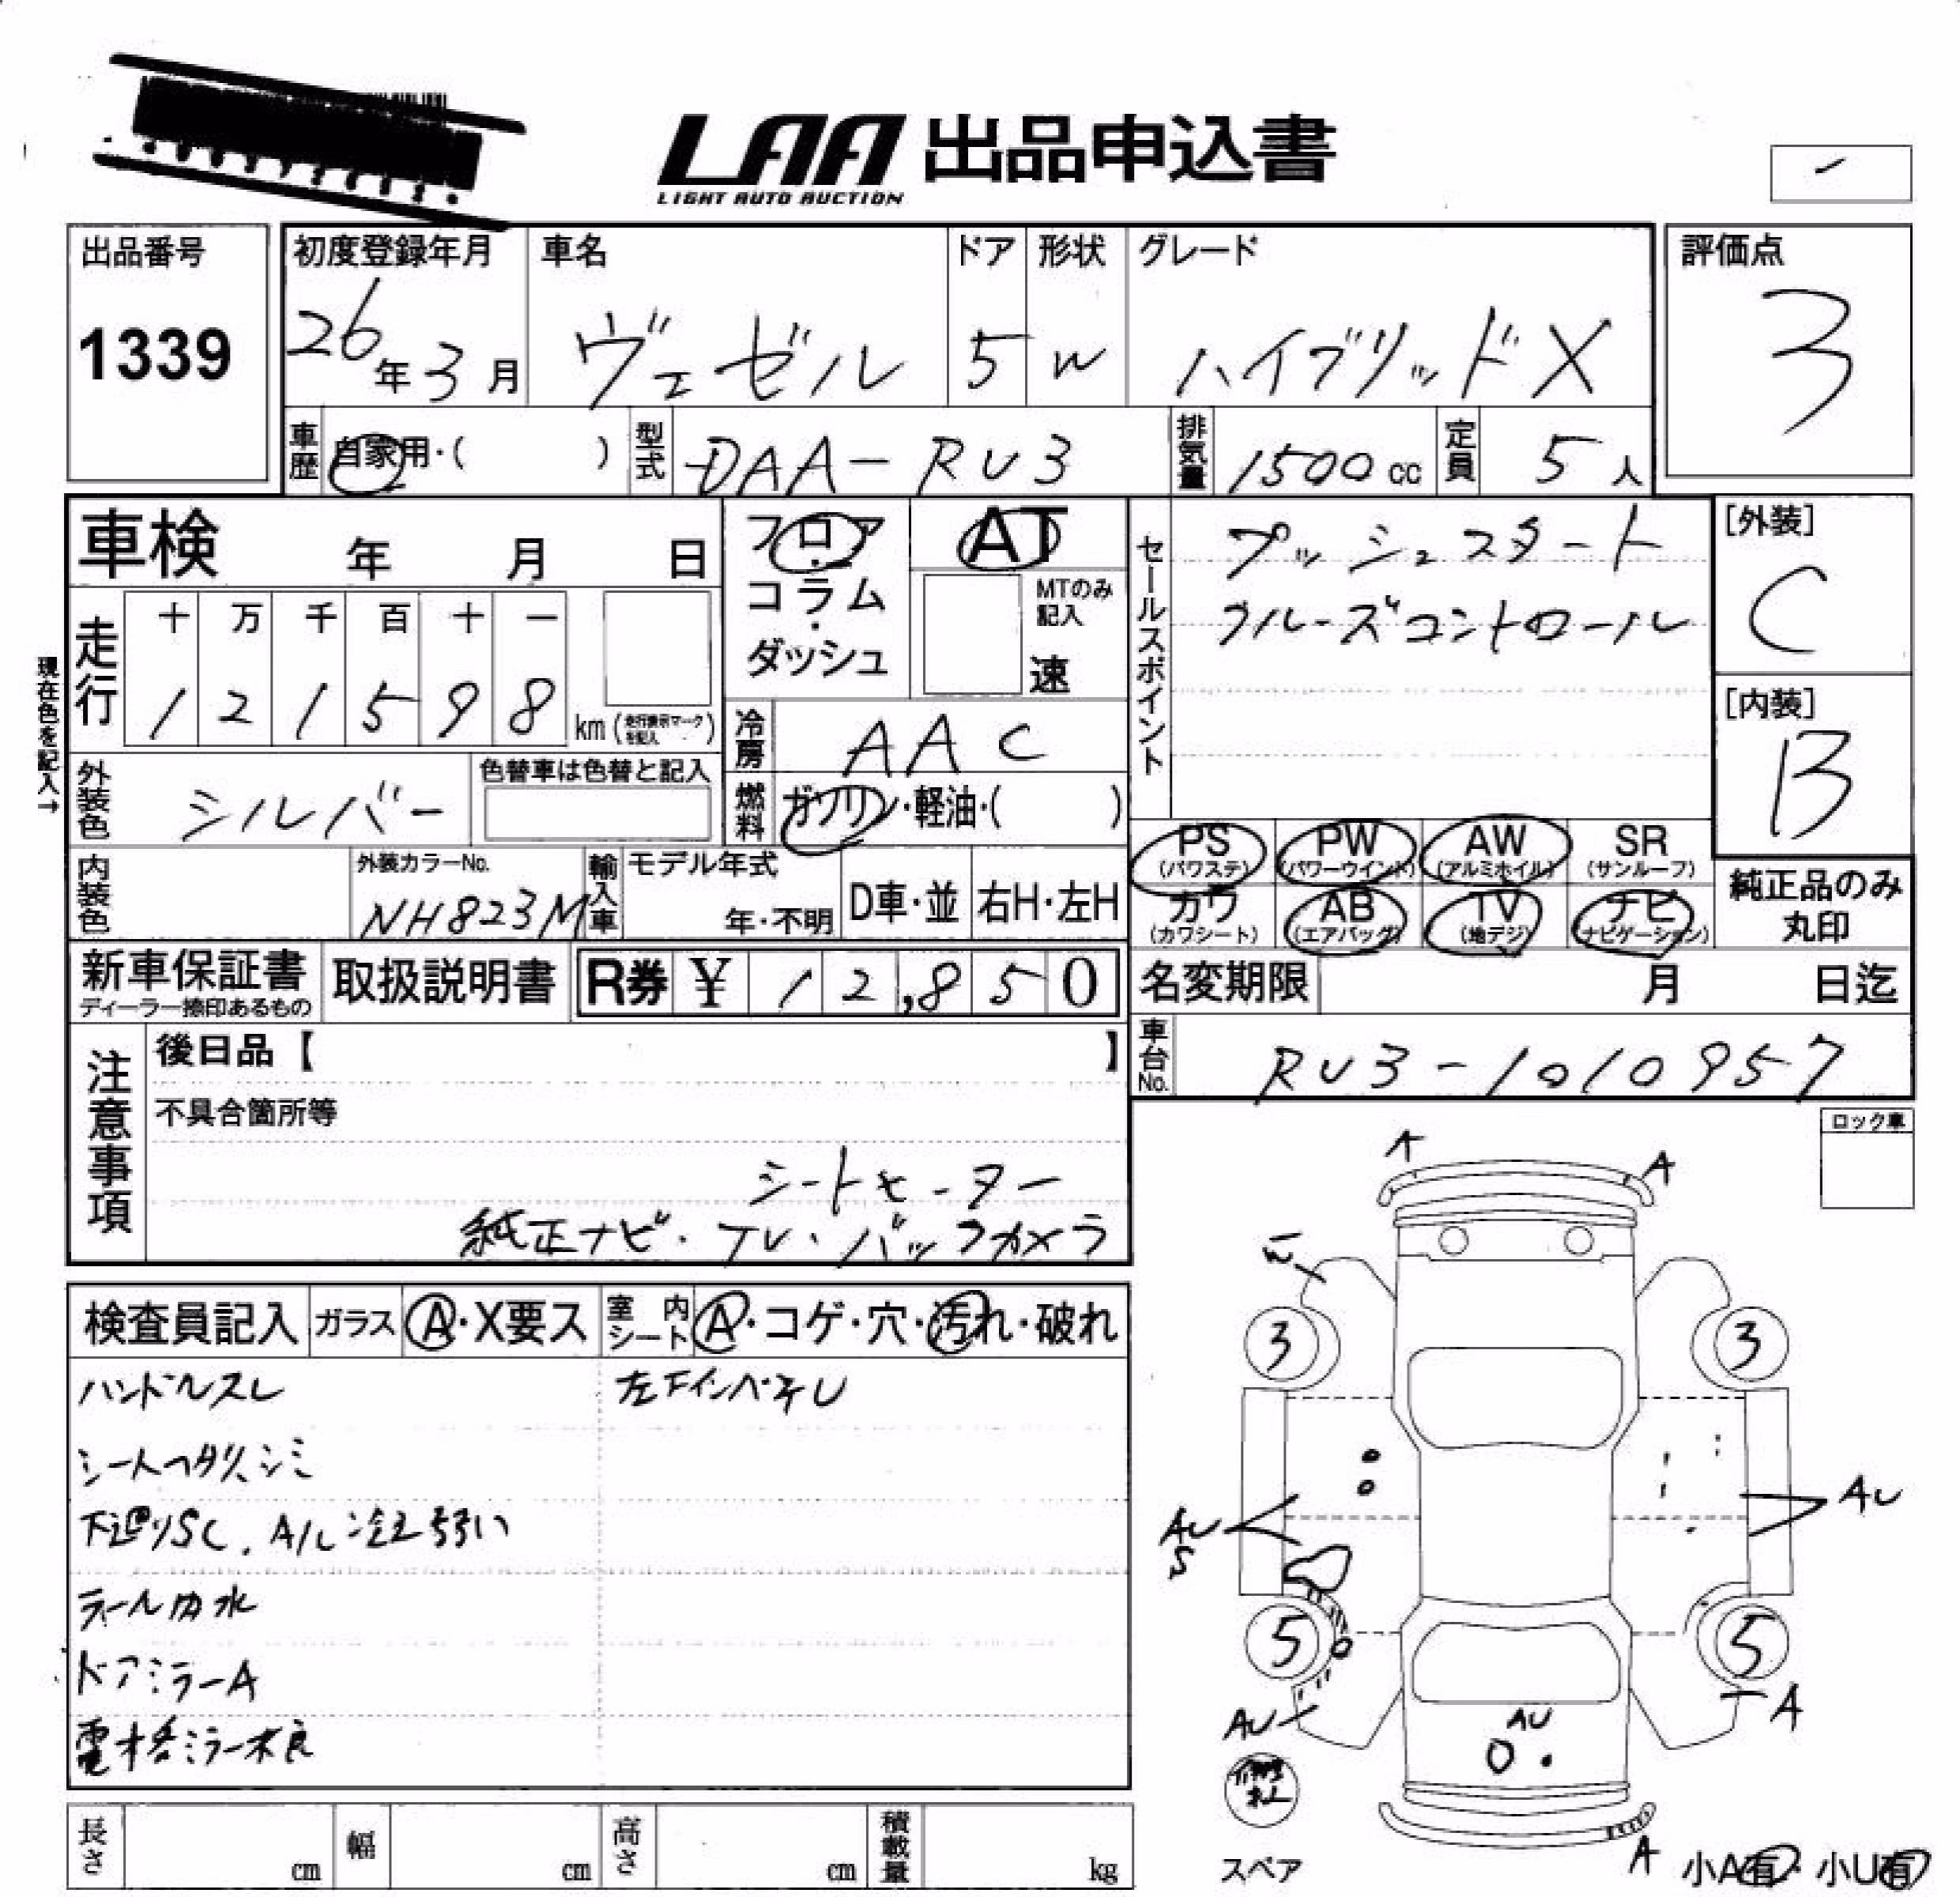 LAA 出品申込書
LIGHT AUTO AUCTION
出品番号
1339
初度登録年月
26年3月
車名
ヴェゼル
ドア
5
形状
W
グレード
ハイブリッドX
評価点
3
車歴
自家用・( )
型式
DAA-RU3
排気量
1500cc
定員
5人
車検 年 月 日
フロア・コラム・ダッシュ
AT
MTのみ記入
速
セールスポイント
プッシュスタート
クルーズコントロール
[外装]
C
[内装]
B
現在色を記入→
走行
十 万 千 百 十 一
1 2 1 5 9 8 km(走行表示マークを記入)
冷房
AAC
外装色
シルバー
色替車は色替と記入
燃料
ガソリン・軽油・( )
PS (パワステ) PW (パワーウインド) AW (アルミホイル) SR (サンルーフ)
カワ (カワシート) AB (エアバッグ) TV (地デジ) ナビ (ナビゲーション)
純正品のみ丸印
内装色
外装カラーNo.
NH823M
輸入車
モデル年式
年・不明
D車・並
右H・左H
新車保証書
ディーラー捺印あるもの
取扱説明書
R券 ¥ 12,850
名変期限 月 日迄
車台No.
RU3-1010957
注意事項
後日品【 】
不具合箇所等
シートヒーター
純正ナビ・TV・バックカメラ
ロック車
検査員記入 ガラス A・X要ス 室内シート A・コゲ・穴・汚れ・破れ
ハンドルスレ
左下インペキリ
シートヘタリ、シミ
下廻りSC. A/C冷え弱い
テール内水
ドアミラーA
電格ミラー不良
A
A
3
3
AU
S
AU
5
5
AU
A
AU
A
スペア
小A有・小U有
長さ cm 幅 cm 高さ cm 積載量 kg